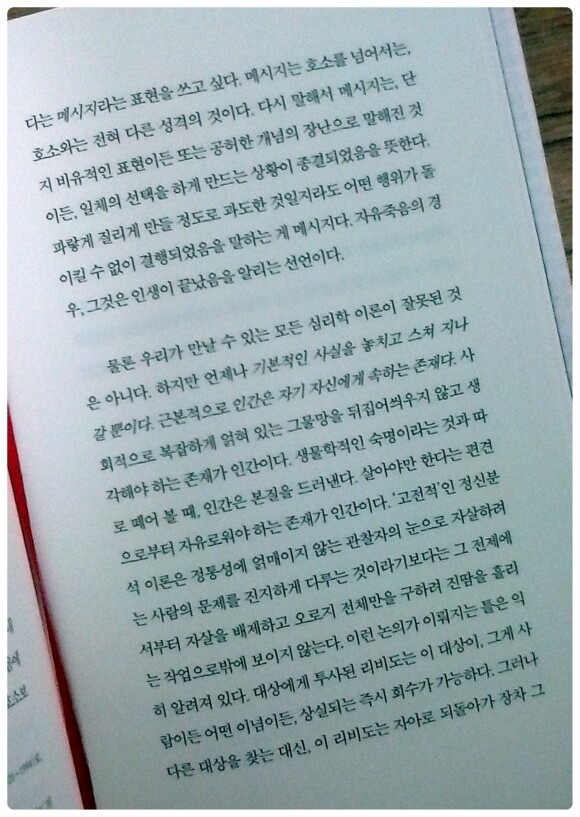 다는 메시지라는 표현을 쓰고 싶다. 메시지는 호소를 넘어서는,
호소와는 전혀 다른 성격의 것이다. 다시 말해서 메시지는, 단
지 비유적인 표현이든 또는 공허한 개념의 장난으로 말해진 것
이든, 일체의 선택을 하게 만드는 상황이 종결되었음을 뜻한다.
파랗게 질리게 만들 정도로 과도한 것일지라도 어떤 행위가 돌
이킬 수 없이 결행되었음을 말하는 게 메시지다. 자유죽음의 경
우, 그것은 인생이 끝났음을 알리는 선언이다.
물론 우리가 만날 수 있는 모든 심리학 이론이 잘못된 것
은 아니다. 하지만 언제나 기본적인 사실을 놓치고 스쳐 지나
갈 뿐이다. 근본적으로 인간은 자기 자신에게 속하는 존재다. 사
회적으로 복잡하게 얽혀 있는 그물망을 뒤집어씌우지 않고 생
각해야 하는 존재가 인간이다. 생물학적인 숙명이라는 것과 따
로 떼어 볼 때, 인간은 본질을 드러낸다. 살아야만 한다는 편견
으로부터 자유로워야 하는 존재가 인간이다. '고전적'인 정신분
석 이론은 정통성에 얽매이지 않는 관찰자의 눈으로 자살하려
는 사람의 문제를 진지하게 다루는 것이라기보다는 그 전제에
서부터 자살을 배제하고 오로지 전체만을 구하려 진땀을 흘리
는 작업으로밖에 보이지 않는다. 이런 논의가 이뤄지는 틀은 익
히 알려져 있다. 대상에게 투사된 리비도는 이 대상이, 그게 사
람이든 어떤 이념이든, 상실되는 즉시 회수가 가능하다. 그러나
다른 대상을 찾는 대신, 이 리비도는 자아로 되돌아가 장차 그